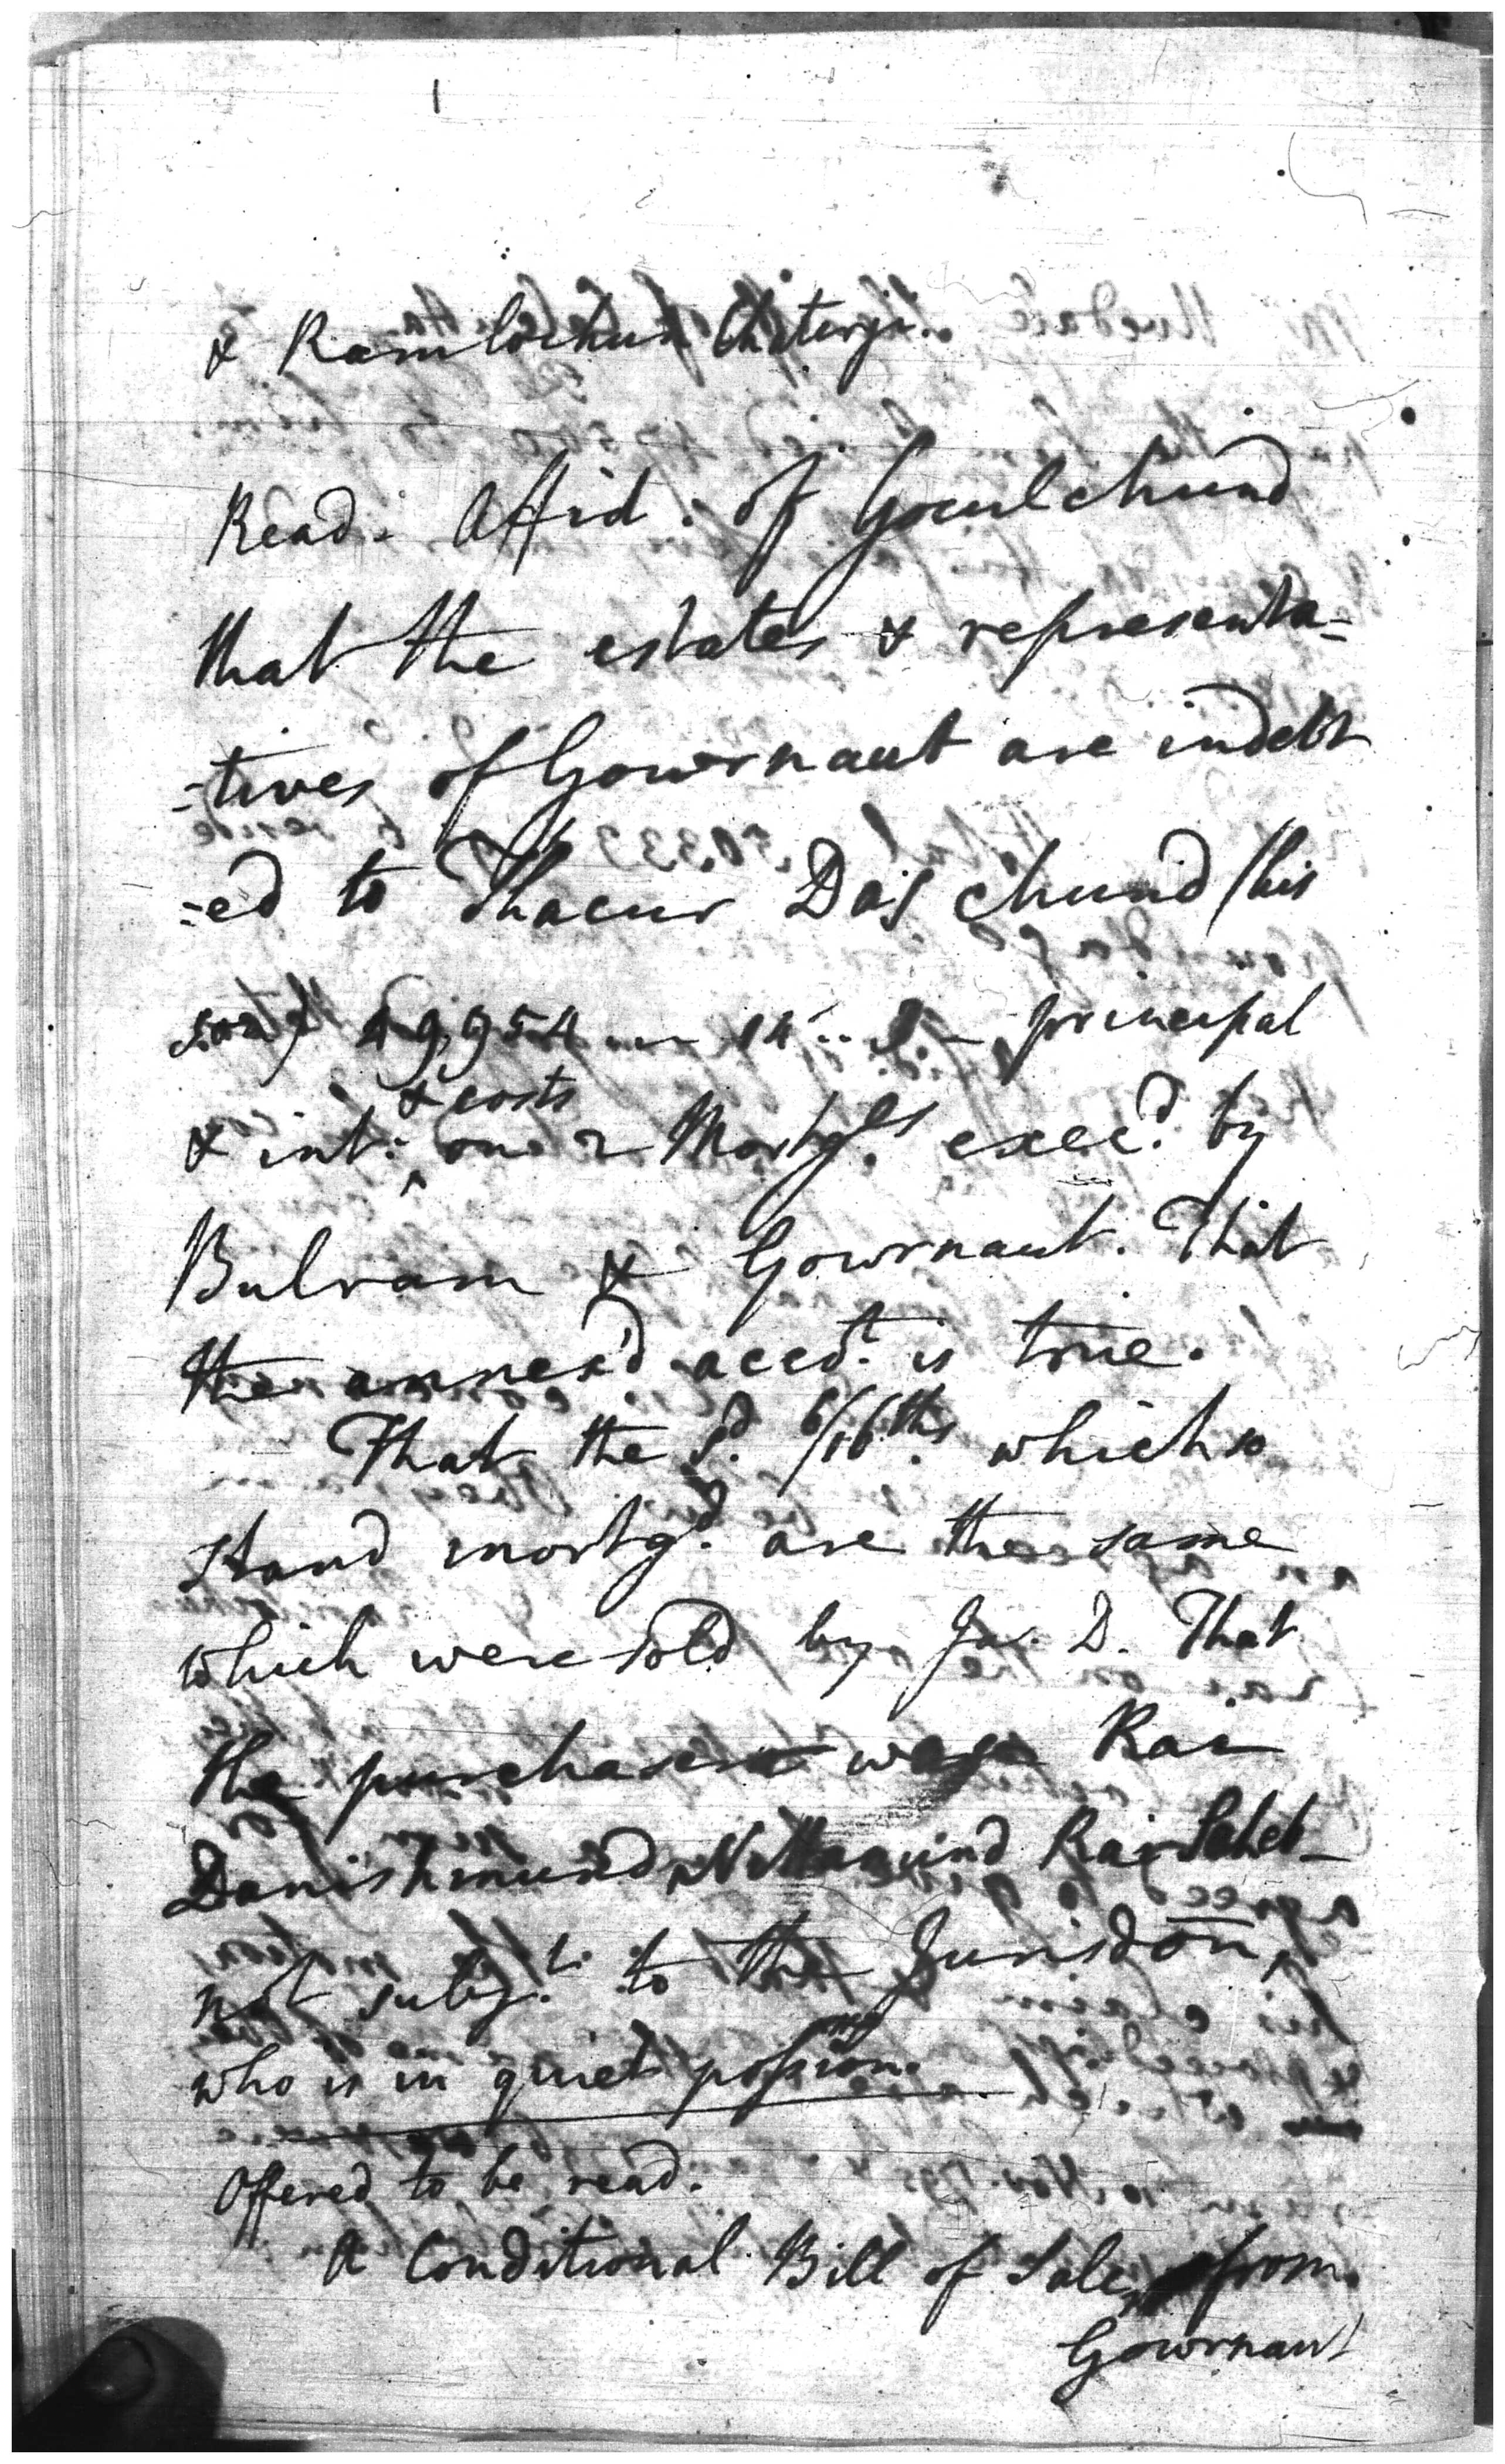 & Ramlochun Chaterji.
Read. Affid. of Goculchund
that the estates & representa=
=tives of Gowrnaut are indebt
=ed to Thacur Das Chund (his
son) 49,954 .. 14 .. principal
& costs
& int: on 2 Mortg.es exec.d by
Bulram & Gowrnaut. That
the annex'd acco.t is true.
That the s.d 6/16ths. which so
stand mortg.d are the same
which were sold by Ja. D. That
the purchaser was Rai
Danishmund Nittanund Rai Saheb
not subj.t to the Jurisdon,
who is in quiet possion.
Offered to be read.
A Conditional Bill of Sale from
Gowrnaut